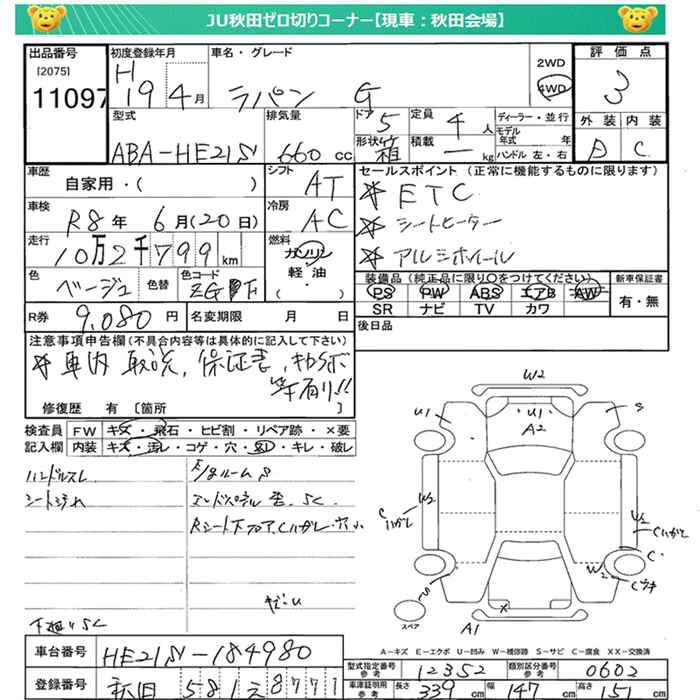 JU秋田ゼロ切りコーナー【現車：秋田会場】
出品番号 初度登録年月 車名・グレード 2WD 4WD 評価点
[2075] 11097 H 19年 4月 ラパン G 3
型式 排気量 ドア 5 定員 4人 ディーラー・並行 外装 内装
ABA-HE21S 660 cc 形状 箱 積載 ー kg モデル年式 年 ハンドル 左・右 D C
車歴 自家用・( ) シフト AT セールスポイント (正常に機能するものに限ります)
車検 R8年 6月(20日) 冷房 AC ETC
シートヒーター
走行 10万2千799km 燃料 ガソリン 軽・油 ・( ) アルミホイール
色 ベージュ 色替 色コード ZG 装備品 (純正品に限り〇をつけてください) 新車保証書
PS PW ABS エアB AW 有・無
R券 9,080円 名変期限 月 日 SR ナビ TV カワ
後日品
注意事項申告欄(不具合内容等は具体的に記入して下さい)
車内 取説, 保証書,
等有り!!
修復歴 有 [箇所 ]
検査員 FW キズ・飛石・ヒビ割・リペア跡・×要
記入欄 内装 キズ・汚レ・コゲ・穴・・キレ・破レ
ハンドルスレ
シート汚れ
エンドパネル
Rシート下フロア, Cハガレ・穴
下廻り SC
W2
U1 U1 A2 S
Cハガレ W2 W2 Cハガレ
C
S W2 Cウキ
X
スペア A1
A－キズ E－エクボ U－凹み W－補修跡 S－サビ C－腐食 XX－交換済
車台番号 HE21S-184980 型式指定番号 参考 12352 類別区分番号 参考 0602
登録番号 秋田 581 え 8771 車庫証明用 参考 長さ 339cm 幅 147cm 高さ 151cm